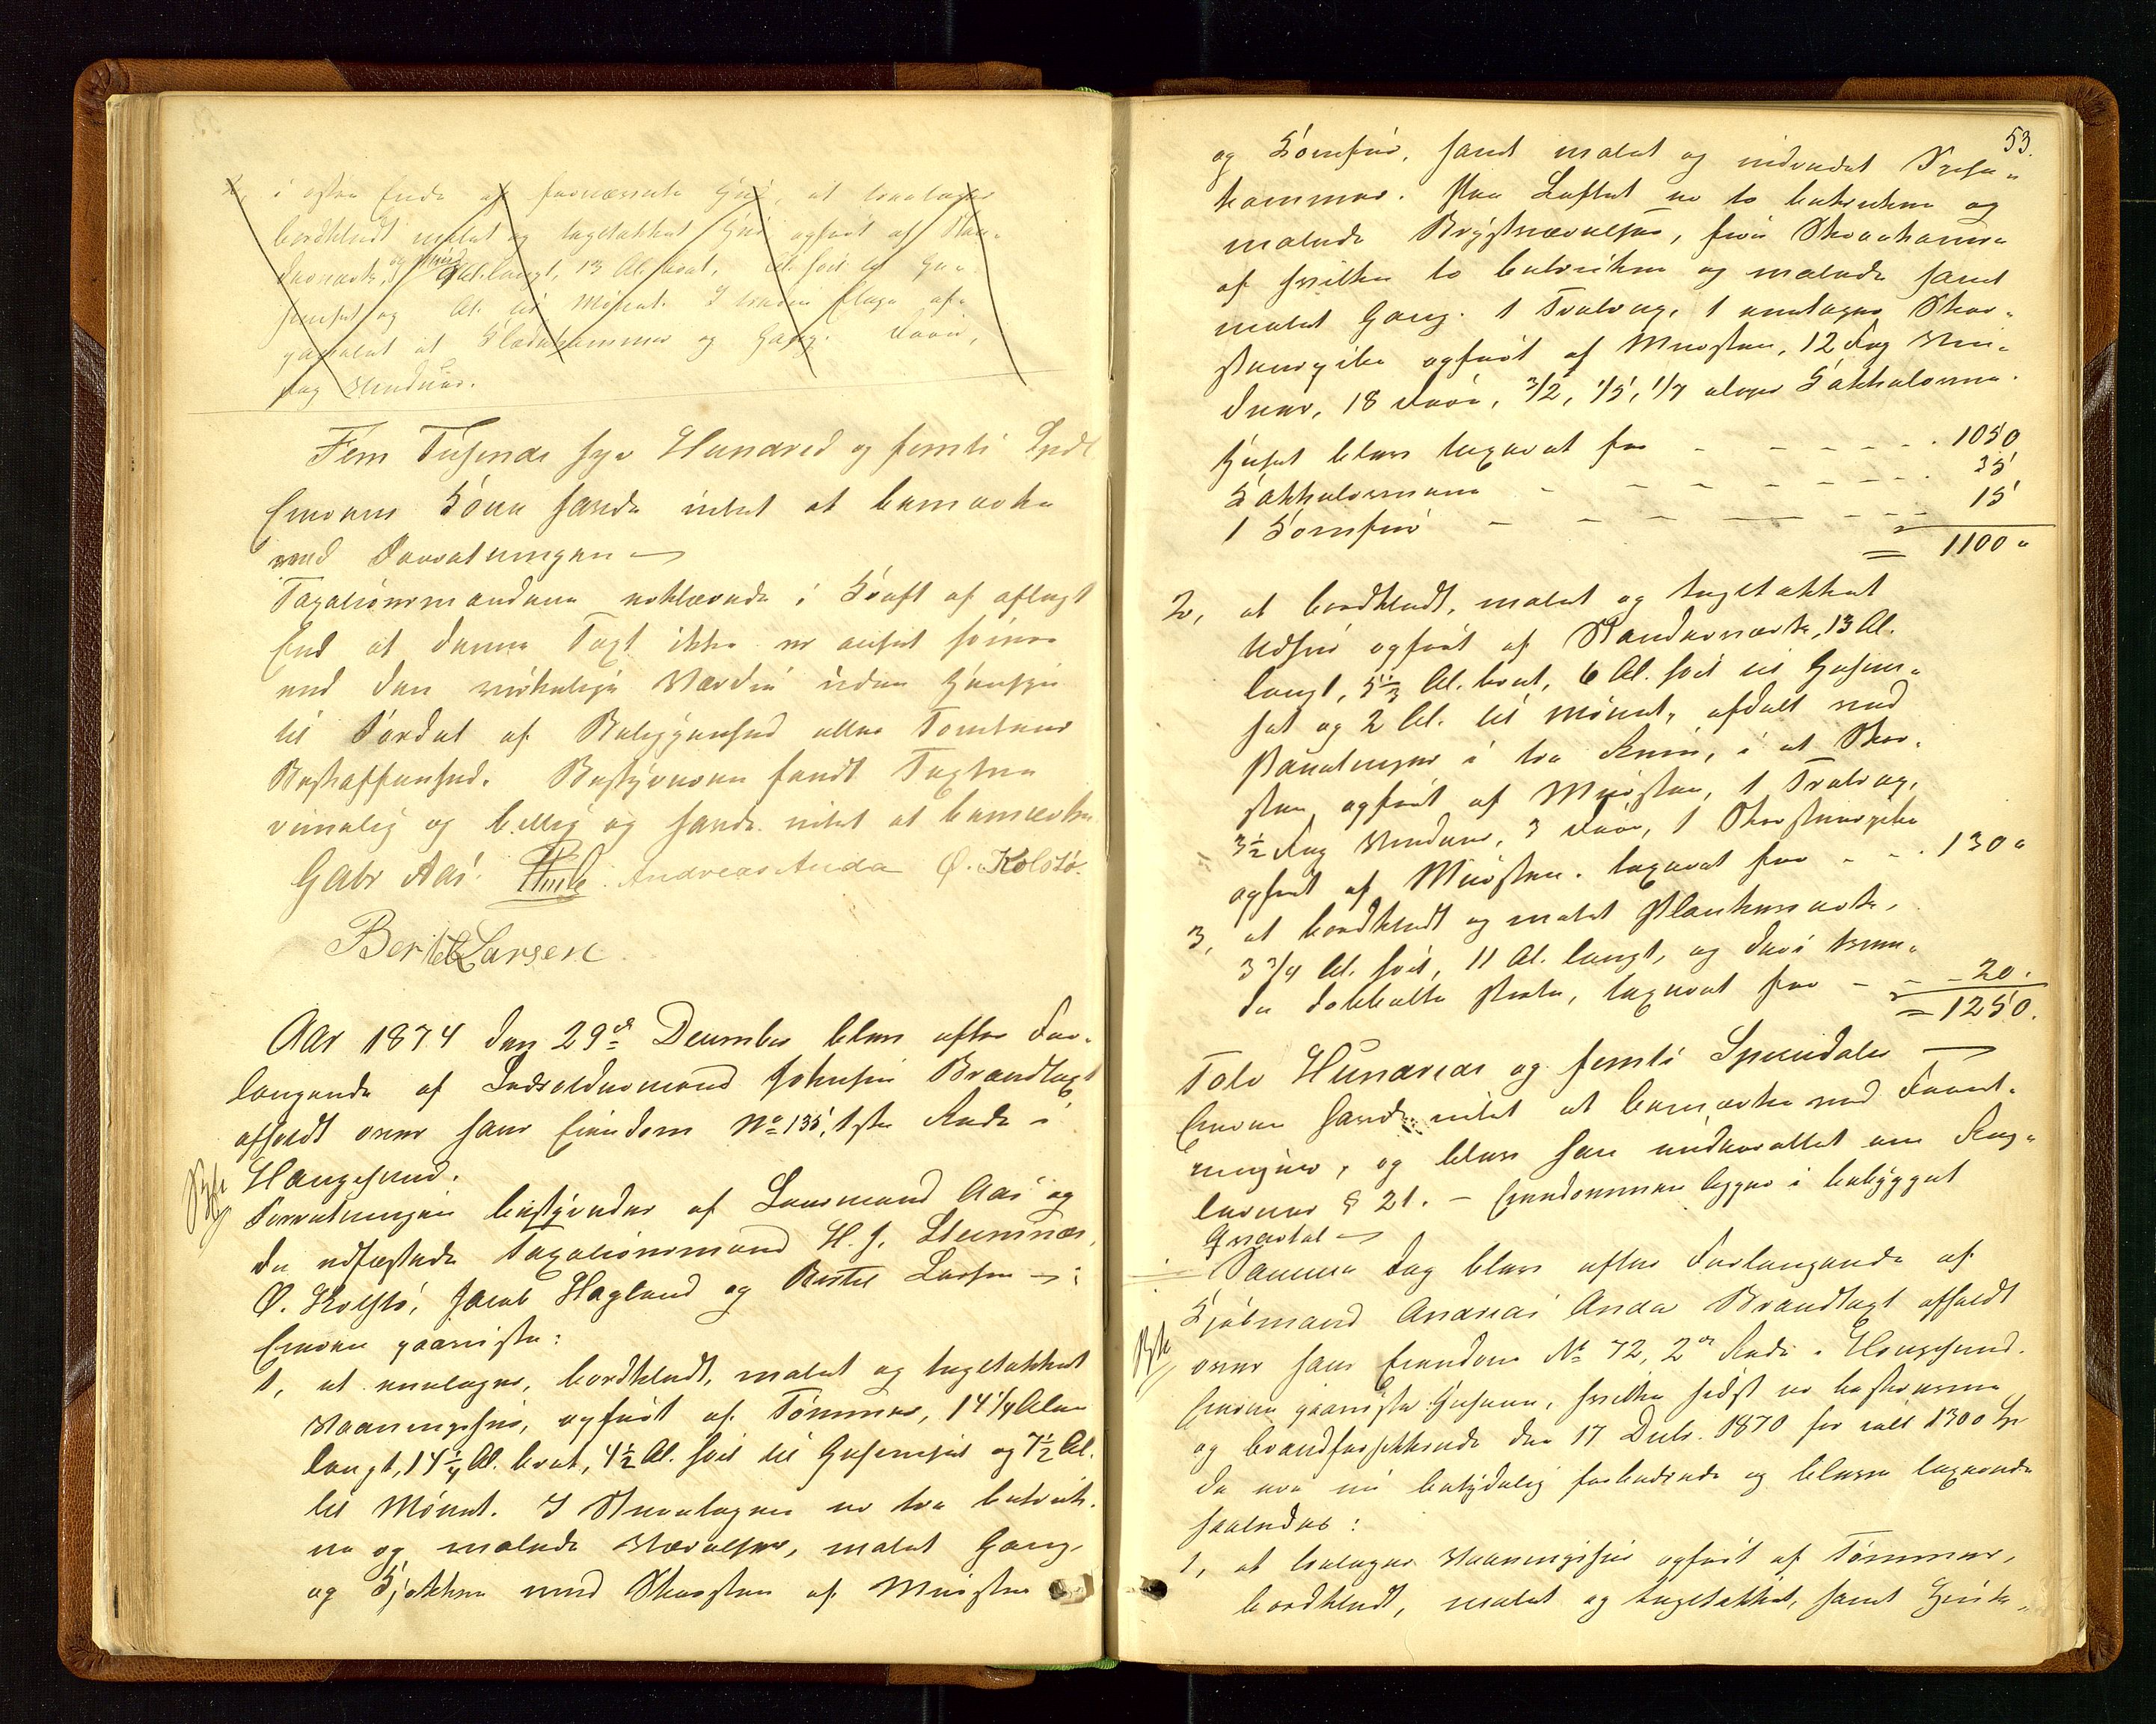 2, i østre Ende af fornævnte Huus, et toetages
bordklædt malet og tegltækket Huus opført af Stan-
derværk, Al. langt, 13 Al. bredt, Al. høit til Ge-
simset og Al. til Mønet. I første Etage af-
panelet et Klædekammer og Gang. Døre,
Fag Vinduer.
Fem Tusende syv Hundred og femti Spdl
Eierens Kone havde intet at bemærke
ved Forretningen —
Taxationsmændene erklærede i Kraft af aflagt
Eed at denne Taxt ikke er ansat høiere
end den virkelige Værdie uden Hensyn
til Fordel af Beliggenhed eller Tomtens
Beskaffenhed. Bestyreren fandt Taxten
rimelig og billig og havde intet at bemærke
Gabr Aas. Andreas Anda Ø. Kolstø.
Bertel Larsen
Aar 1874 den 29de December blev efter For-
langende af Johnsen Brandtaxt
afholdt over hans Eiendom No 135, 1ste Rode i
Haugesund.
Forretningen bestyredes af Lensmand Aas og
de edfæstede Taxationsmænd H. J. Stemnæs,
Ø. Kolstø, Jacob Hagland og Bertel Larsen —:
Eieren paaviste:
1, et enetages, bordklædt, malet og tegltækket
Vaaningshus, opført af Tømmer, 14 1/4 Alen
langt, 14 1/4 Al. bredt, 4 1/2 Al. høit til Gesimset og 7 1/2 Al.
til Mønet. I Stueetagen er tre betræk-
ne og malede Værelser, malet Gang
og Kjøkken med Skorsten af Muursten
53.
og Komfur, samt malet og indredet Spise-
kammer. Paa Loftet er to betrukne og
malede Brystværelser, fire Skraakamre
af hvilke to betrukne og malede samt
malet Gang. 1 Trætrap, 1 enetages Skor-
stenspibe opført af Mursten, 12 Fag Vin-
duer, 18 Døre, 3/2, 1/5, 1/7 etages Kakkelovne.
Huset blev taxeret for - - - - - . 1050
Kakkelovnene - - - - - - - - . 35
1 Komfur - - - - - - - - - 15
= 1100 "
2, et bordklædt, malet og tegltækket
Udhus opført af Standerværk, 13 Al.
langt, 5 1/3 Al. bredt, 6 Al. høit til Gesim-
set og 2 Al. til Mønet, afdelt med
Panelinger i tre Rum, i et Skor-
sten opført af Mursten, 1 Trætrap,
3 1/2 Fag Vinduer, 3 Døre, 1 Skorstenspibe
opført af Mursten. taxeret for - - . 130 "
3, et bordklædt og malet Plankeværk,
3 3/4 Al. høit, 11 Al. langt, og deri væren-
de dobbelte Porte, taxeret for - - - 20.
= 1250.
Tolv Hundrede og femti Speciedaler —
Eieren havde intet at bemærke ved Forret-
ningen, og blev han underrettet om Reg-
lernes § 21. — Eiendommen ligger i bebygget
Qvartal —
Samme Dag blev efter Forlangende af
Kjøbmand Andreas Anda Brandtaxt afholdt
over hans Eiendom No 72, 2den Rode i Haugesund.
Eieren paaviste Husene, hvilke sidst er beskrevne
og brandforsikkrede den 17 Decbr. 1870 for ialt 1300 Sp
De ere nu betydelig forbedrede og bleve taxerede
saaledes:
1, et toetages Vaaningshus opført af Tømmer,
bordklædt, malet og tegltækket, samt